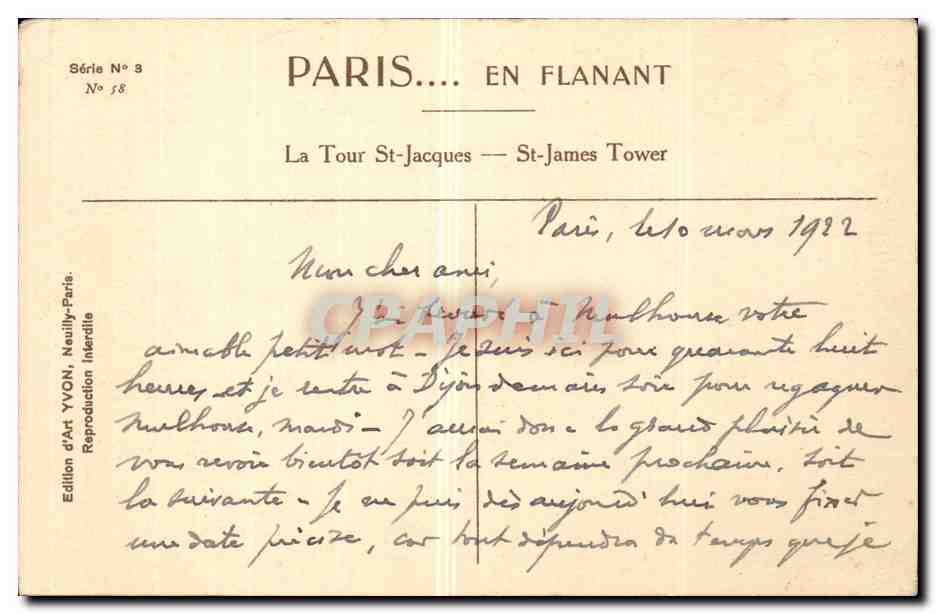 Série N° 3
N° 58
PARIS.... EN FLANANT
La Tour St-Jacques — St-James Tower
Edition d'Art YVON, Neuilly-Paris.
Reproduction Interdite
Paris, le 10 mars 1922
Mon cher ami,
J'ai à Mulhouse votre
aimable petit mot - Je suis ici pour quarante huit
heures et je rentre à Dijon demain soir pour regagner
Mulhouse, mardi - J'aurai donc le grand plaisir de
vous revoir bientôt soit la semaine prochaine, soit
la suivante - Je ne puis dès aujourd'hui vous fixer
une date précise, car tout dépendra du temps que je
CPAPHIL